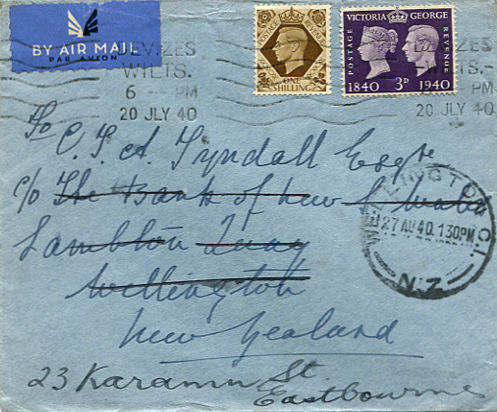 BY AIR MAIL
PAR AVION
DEVIZES
WILTS.
6 PM
20 JLY 40
ONE
SHILLING
VICTORIA GEORGE
POSTAGE
REVENUE
1840 3D 1940
WILTS.
PM
20 JLY 40
To
C. A. Tyndall Esqre
c/o The Bank of New S. Wales
Lambton Quay
Wellington
New Zealand
23 Karamu St
Eastbourne
WELLINGTON C.1.
27 AU 40. 1 30PM
N.Z